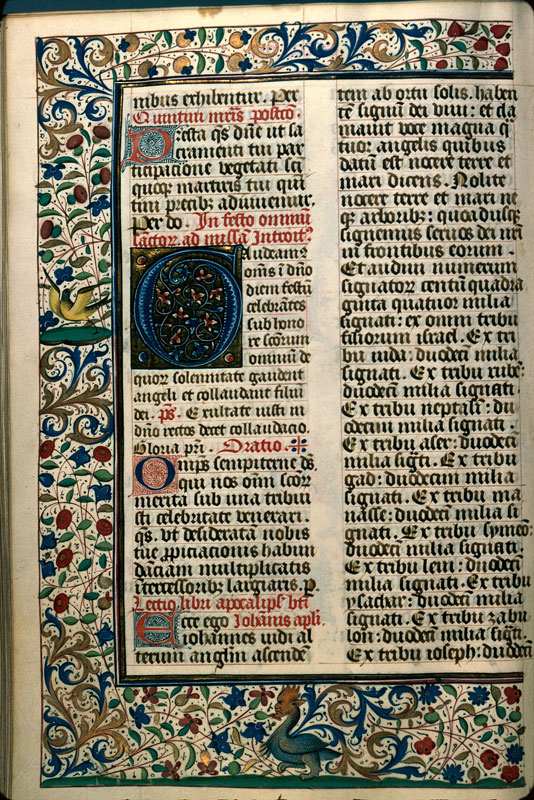 nibus exhibentur. Per
Quintini mr̃is postcõ.
Presta qs dñe ut sa
cramenti tui par
ticipatione vegetati sc̃i
quoqz martiris tui qui
tini precibz adiuuemur.
Per do. In festo omniũ
sanctorz ad missã Introit⁹
Gaudeam⁹
om̃s ĩ dño
diem festũ
celebrãtes
sub hono
re scõrum
omniũ de
quorz solennitate gaudent
angeli et collaudant filiũ
dei. ps. Exultate iusti in
dño rectos decet collaudacio.
Gloria pr̃i. Oratio.
Om̃ps sempiterne ds̃.
qui nos om̃ scõrz
merita sub una tribui
sti celebritate venerari.
qs. vt desideratã nobis
tue ꝓpiciacionis habun
dãciam multiplicatis
ĩtercessoribz largiaris. p.
Lectio libri apocalips̃ bt̃i
Ecce ego Iohãnis apl̃i.
iohannes uidi al
terum anglm̃ ascendẽ
tem ab ortu solis. haben
tẽ signũ dei viui: et cla
mauit voce magna q̃
tuor angelis quibus
datũ est nocere terre et
mari dicens. Nolite
nocere terre et mari ne
qz arboribz: quoadusqz
signemus seruos dei nr̃i
in frontibus eorum.
Et audiui numerum
signatorz centũ quadra
ginta quatuor milia
signati: ex omni tribu
filiorum israel. Ex tri
bu iuda: duodecĩ milia
signati. Ex tribu rubẽ:
duodecĩ milia signati
Ex tribu neptalĩ: du
odecim milia signati.
Ex tribu aser: duodecĩ
milia sig̃ti. Ex tribu
gad: duodecim milia
signati. Ex tribu ma
nasse: duodecĩ milia si
gnati. Ex tribu symeõ:
duodecĩ milia signati.
Ex tribu leui: duodecĩ
milia signati. Ex tribu
ysachar: duodecĩ milia
signati. Ex tribu zabu
lon: duodecĩ milia sig̃ti.
Ex tribu ioseph: duodecĩ